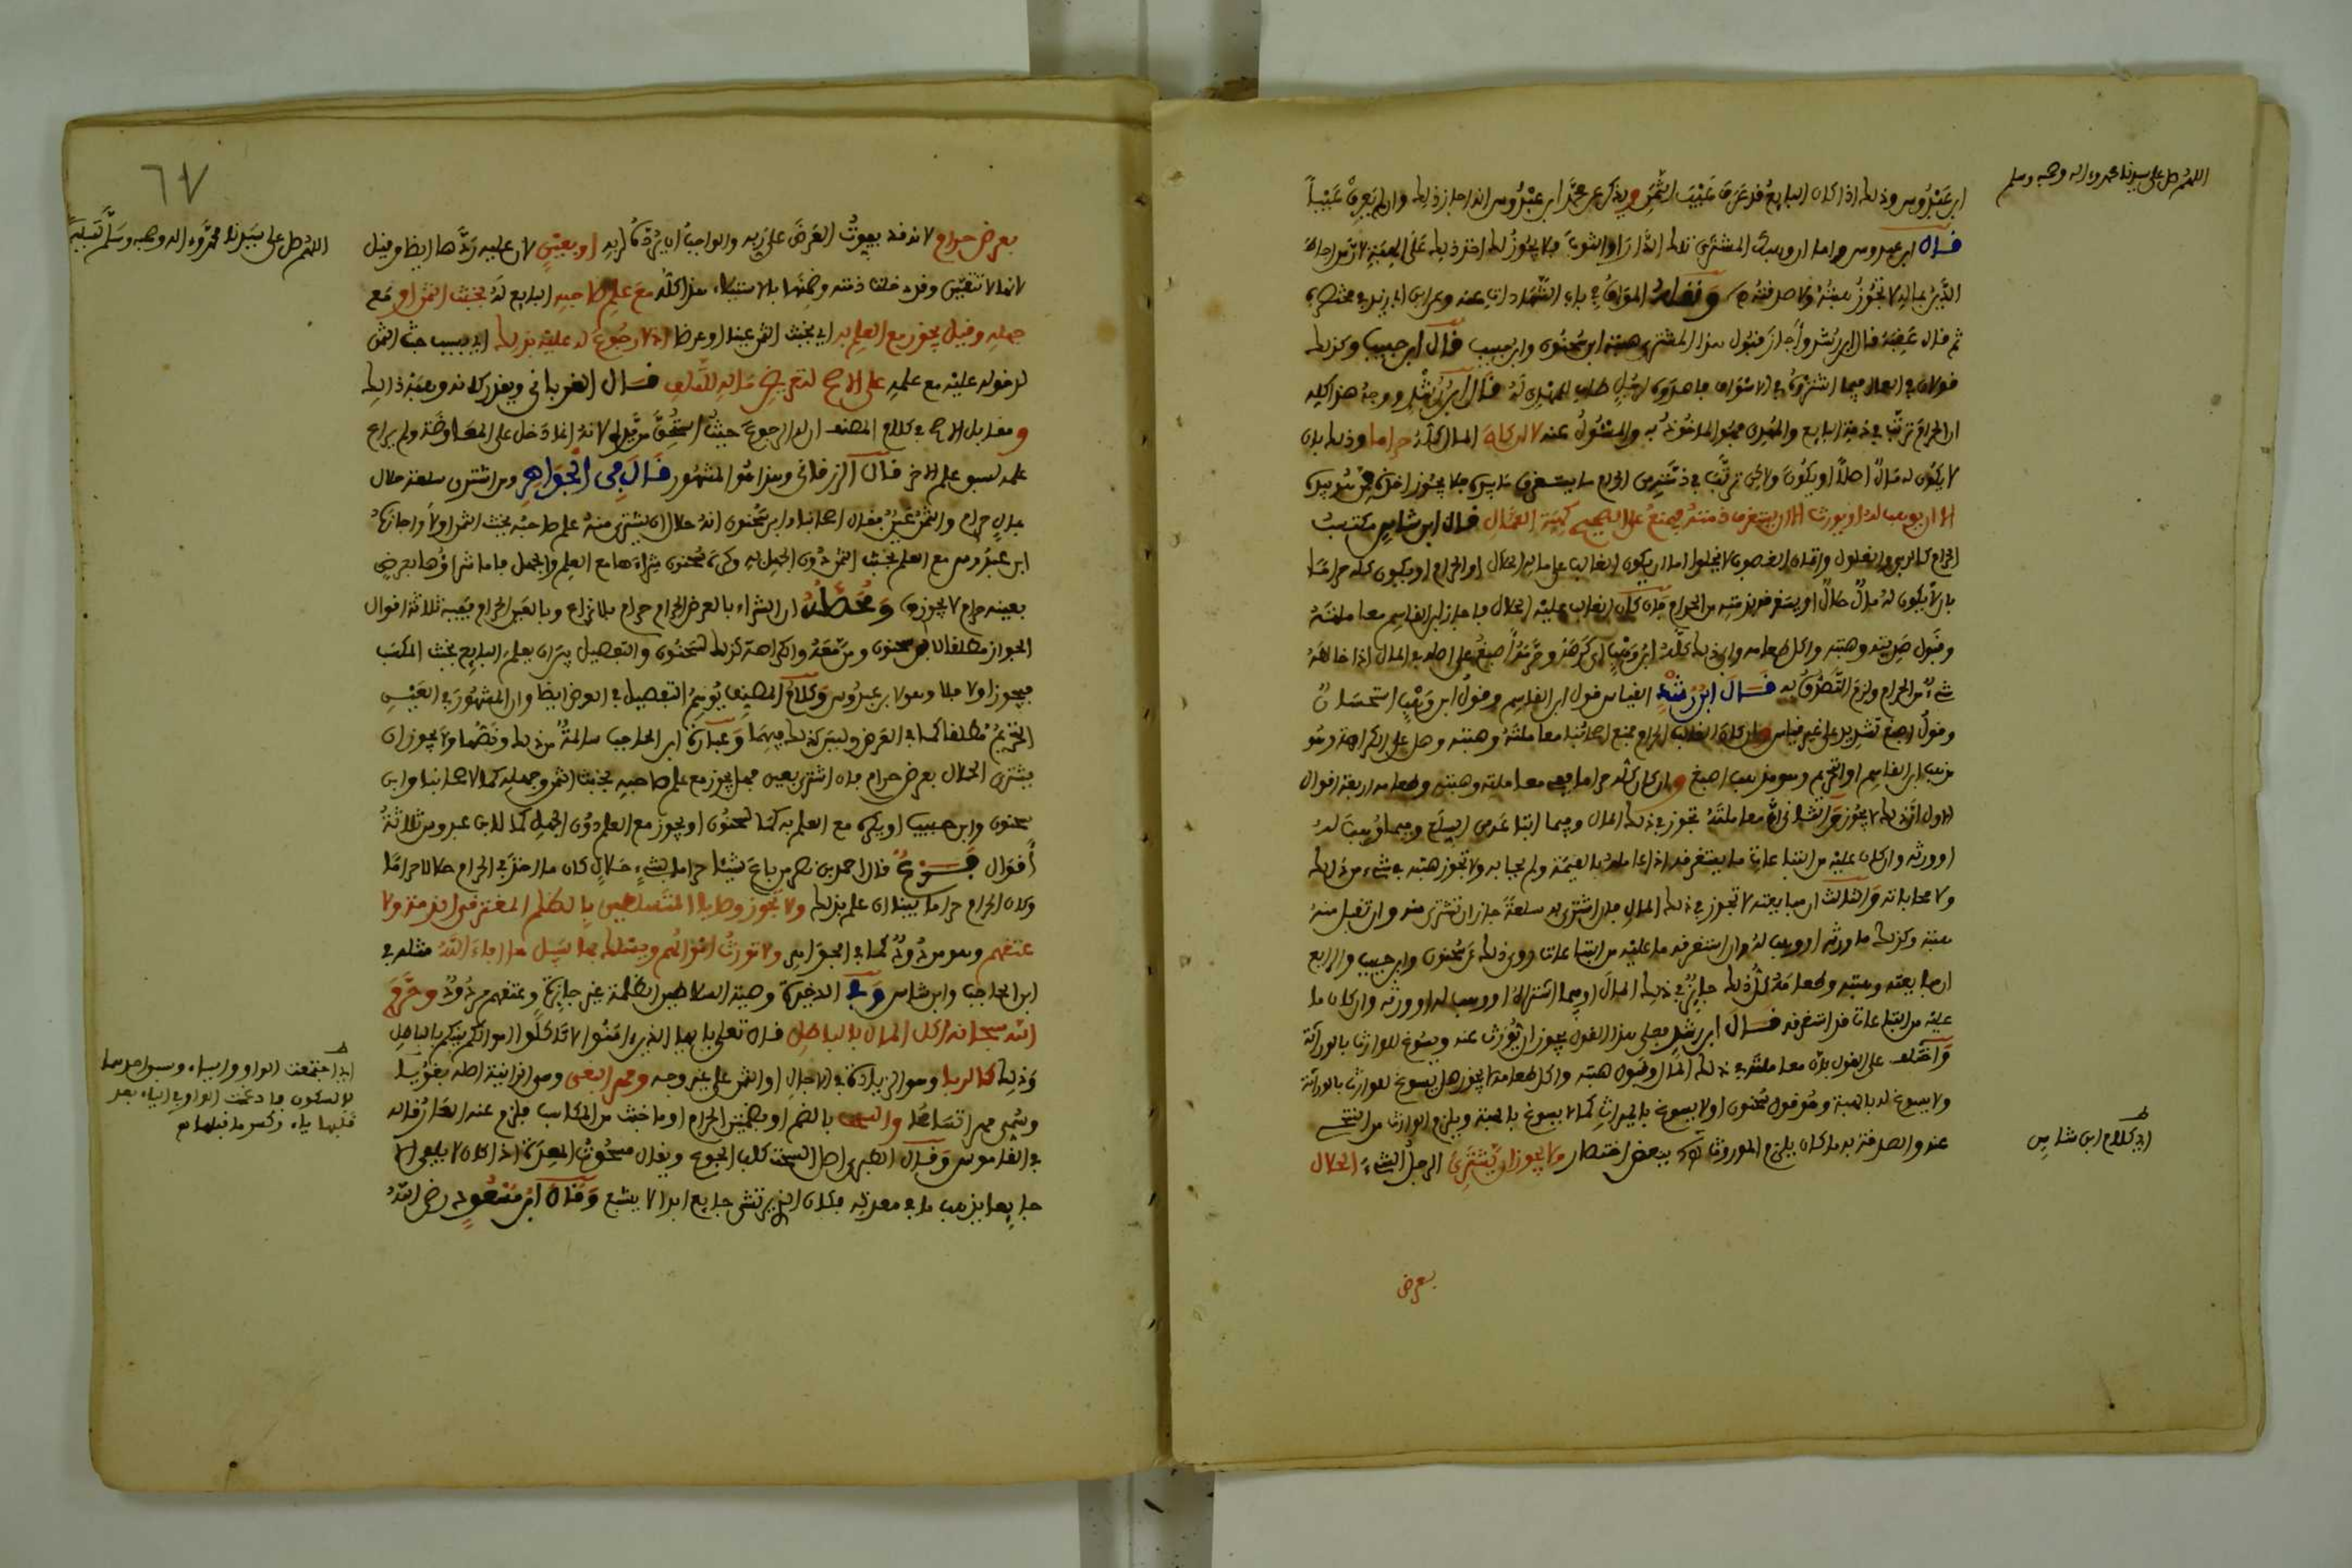 اللهم صل على سيدنا محمد وءاله وصحبه وسلم
ابن عبدوس وذلك اذا كان البايع قد عرف بخبث الثمن ويذكر عن محمد ابن عبدوس انه اجاز ذلك وان لم يعرف
قال ابن عبدوس واما ان وهبك المشترى تلك الدار او الثوب فلا يجوز لك اخذ ذلك على الهبة لان من احاط
الدين بماله لا تجوز هبته ولا صدقته
ثم قال عقبه قال ابن رشد واجاز قبول هذا المشترى هبته ابن سحنون وابن حبيب قال ابن حبيب وكذلك
فولان في العمال فيما اشتروه في الاسواق فاهدوه لرجل طاب للمهدى له قال ابن رشد ووجه هذا كله
ان الحرام ترتب في ذمة البايع والمهدى فهو الماخوذ به والمسئول عنه
لا يكون له مال اصلا او يكون ولاكن ترتب في ذمته من الحرام ما يستغرق ما بيده فلا يجوز اخذه من يديه
الا ان يوهب له او يورث
قال ابن شاس مكتسب
الحرام كالربى والغلول واثمان الغصوب لا يخلوا اما ان يكون الغالب على ماله الحلال او الحرام او يكون كله حراما
بان لا يكون له مال حلال او يستغرق ذمته من الحرام فان كان الغالب عليه الحلال فاجاز ابن القاسم معاملته
وقبول هديته وهبته واكل طعامه وابى ذلك كله ابن وهب اى كرهه وحرمه اصبغ على اصله في المال اذا خالطه
شيء من الحرام ولزم التصدق به قال ابن رشد القياس قول ابن القاسم وقول ابن وهب استحسان
وقول اصبغ تشديد على غير قياس وان كان الغالب الحرام فمنع اصحابنا معاملته وهبته وهل على الكراهة وهو
مذهب ابن القاسم او التحريم وهو مذهب اصبغ وان كان كله حراما ففي معاملته وهبته وطعامه اربعة اقوال
الاول ان ذلك لا يجوز والثانى ان معاملته تجوز في ذلك المال وفيما ابتاع من السلع وفيما وهب له
او ورثه وان كان عليه من التباعات ما يستغرقه اذا عامله بالقيمة ولم يحابه ولا تجوز هبته في شيء من ذلك
ولا محاباته والثالث ان مبايعته لا تجوز في ذلك المال فان اشترى به سلعة جاز ان تشترى منه وان تقبل منه
هبته وكذلك ما ورثه او وهب له وان استغرقه ما عليه من التباعات روى ذلك عن سحنون وابن حبيب والرابع
ان مبايعته وهبته وطعامه كل ذلك جايز في ذلك المال وفيما اشتراه او وهب له او ورثه وان كان ما
عليه من التباعات قد استغرقه قال ابن رشد فعلى هذا القول يجوز ان يورث عنه ويسوغ للوارث بالوراثة
واختلف على القول بان معاملته في ذلك المال وقبول هبته واكل طعامه لا يجوز هل يسوغ للوارث بالوراثة
ولا يسوغ له بالهبة وهو قول سحنون او لا يسوغ بالميراث كما لا يسوغ بالهبة ويلزم الوارث من التنحى
عنه والصدقة به ما كان يلزم الموروث ببعض اختصار ولا يجوز ان يشترى الرجل الشيء الحلال
اى كلام ابن شاس
بعرض
٦٧
اللهم صل على سيدنا محمد وءاله وصحبه وسلم تسليما
بعرض حرام لانه قد يفوت العرض على ربه والواجب ان يرد لربه او بعين لان عليه ردها ايضا وقيل
هذا كله مع علم صاحبه البايع له بخبث الثمن او مع
جهله وقيل يجوز مع العلم به اى بخبث الثمن عينا او عرضا اذ لا رجوع له عليه بذلك اى بسبب خبث الثمن
لدخوله عليه مع علمه على الاصح لتعريض ماله للتلف قال
ومقابل الاصح في كلام المصنف ان له الرجوع
قال الزرقانى وهذا هو المشهور قال في الجواهر ومن اشترى سلعة حلال
بمال حرام والثمن عين فقال اصحابنا وابن سحنون انه حلال ان يشترى منه علم صاحبه بخبث الثمن او لا واجازه
ابن عبدوس مع العلم بخبث الثمن دون الجهل به وكره سحنون شراءها مع العلم والجهل فاما شراؤها بعرض
بعينه حرام لا يجوز ومحصله ان الشراء بالعرض الحرام حرام بلا نزاع وبالعين الحرام فيه ثلاثة اقوال
الجواز مطلقا لابن سحنون ومن معه والكراهة كذلك لسحنون والتفصيل بين ان يعلم البايع بخبث المكسب
فيجوز او لا فلا وهو لابن عبدوس وكلام المصنف يوهم التفصيل في العرض ايضا وان المشهور في العين
التحريم مطلقا كما في العرض وليس كذلك فيهما وعبارة ابن الحاجب سالمة من ذلك ونصها ولا يجوز ان
يشترى الحلال بعرض حرام فان اشترى بعين فهل يجوز مع علم صاحبه بخبث الثمن وجهله كما لاصحابنا وابن
سحنون وابن حبيب او يكره مع العلم به كما لسحنون او يجوز مع العلم دون الجهل كما لابن عبدوس ثلاثة
اقوال فرع قال احمد بن نصر من باع شيئا حراما بشيء حلال كان ما اخذ في الحرام حلالا حراما
وكان الحرام حراما بيد ان علم بذلك ولا تجوز وصايا المتسلطين بالظلم المستغرقى الذمة ولا
عتقهم وهو مردود كما في الجواهر ولا تورث اموالهم ويسلك بها سبيل ما افاء الله مثله في
ابن الحاجب وابن شاس وفي الذخيرة وصية السلاطين الظلمة غير جايزة وعتقهم مردود وحرم
الله سبحانه اكل المال بالباطل قال تعلى يا ايها الذين ءامنوا لا تاكلوا اموالكم بينكم بالباطل
وذلك كالربا وهو الزيادة في الاجل او الثمن على غير وجه ومهر البغى وهو الزانية اصله بغويا
وسمى مهرا تساهلا والسحت بالضم او بضمتين الحرام او ما خبث من المكاسب فلزم عنه العار قاله
في القاموس وقال الطبرى اصل السحت كلب الجوع ويقال مسحوت المعدة اذا كان لا يلفى الا
جايعا يذهب ما في معدته فكان الذى يرتشى جايع ابدا لا يشبع وقال ابن مسعود رضى الله
اى اجتمعت الواو والياء وسبق احدهما
بالسكون فادغمت الواو في الياء بعد
قلبها ياء وكسر ما قبلها